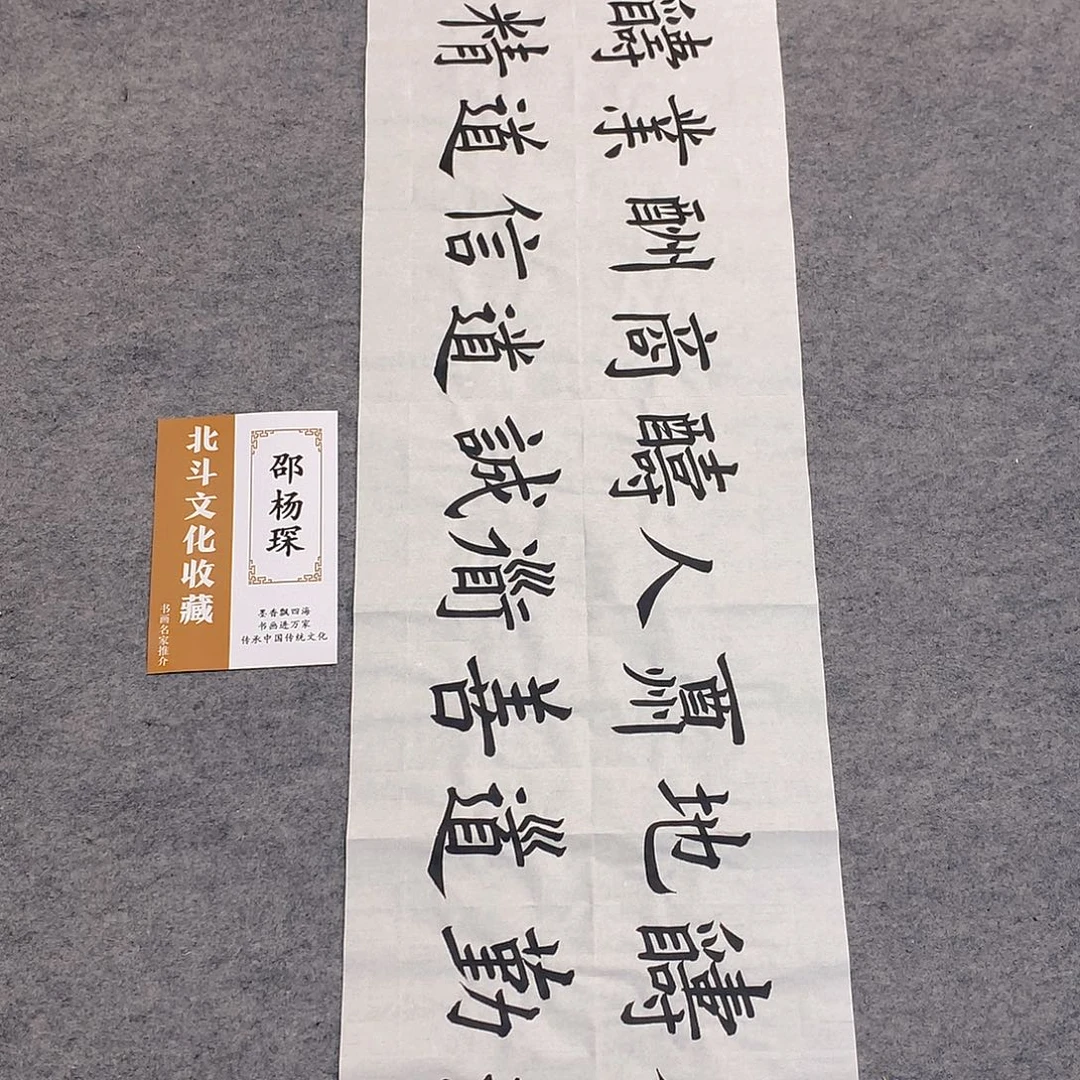 醻勤
地道
酬善
人衜
醻誠
商道
酬信
業道
精
北斗文化收藏
书画名家推介
邵杨琛
墨香飘四海
书画进万家
传承中国传统文化